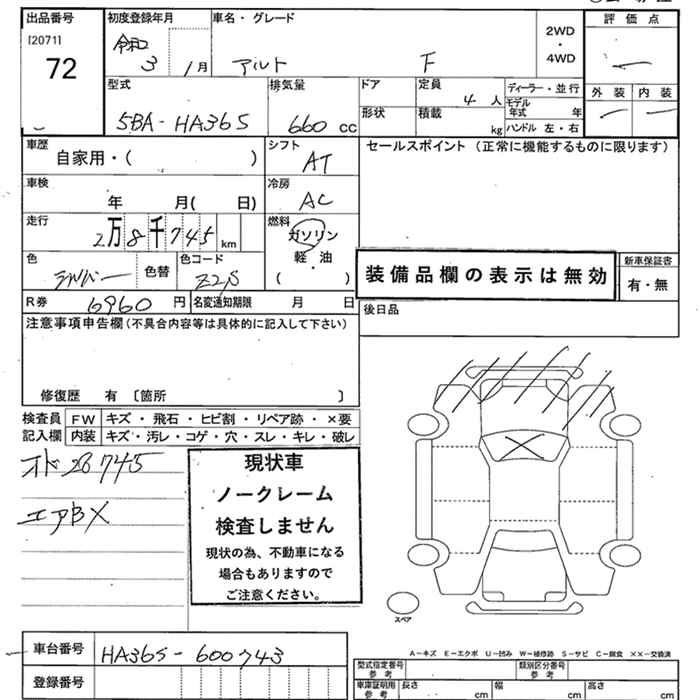 出品番号 初度登録年月 車名・グレード 評価点
[2071] 令和 2WD
72 3 1月 アルト F ・
4WD
型式 排気量 ドア 定員 4人 ディーラー・並行 外装 内装
5BA-HA36S 660cc 形状 積載 kg モデル年式 年
ハンドル 左・右
車歴 シフト セールスポイント（正常に機能するものに限ります）
自家用・（ ） AT
車検 冷房
年 月( 日) AC
走行 燃料
2万8千745km ガソリン
軽・油
( )
色 色替 色コード
シルバー Z2S
装備品欄の表示は無効 新車保証書
有・無
R券 6960円 名変通知期限 月 日 後日品
注意事項申告欄（不具合内容等は具体的に記入して下さい）
修復歴 有 〔箇所 〕
検査員 FW キズ・飛石・ヒビ割・リペア跡・×要
記入欄 内装 キズ・汚レ・コゲ・穴・スレ・キレ・破レ
オド28745
エアBX
現状車
ノークレーム
検査しません
現状の為、不動車になる
場合もありますので
ご注意ください。
スペア
車台番号 HA36S-600743
登録番号
A－キズ E－エクボ U－凹み W－補修跡 S－サビ C－腐食 ××－交換済
型式指定番号 参考 類別区分番号 参考
車庫証明用 参考 長さ cm 幅 cm 高さ cm